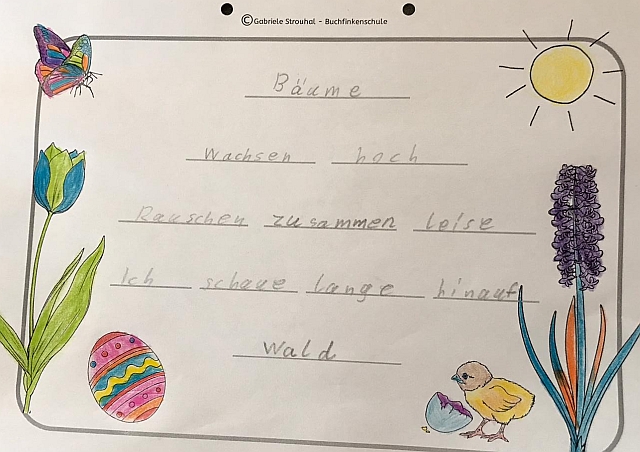 ©Gabriele Strouhal - Buchfinkenschule
Bäume
Wachsen hoch
Rauschen zusammen leise
Ich schaue lange hinauf
Wald